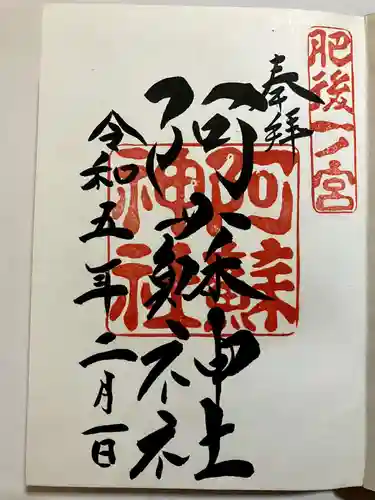 肥後一宮
奉拝
阿蘇神社
阿蘇
神社
令和五年二月一日